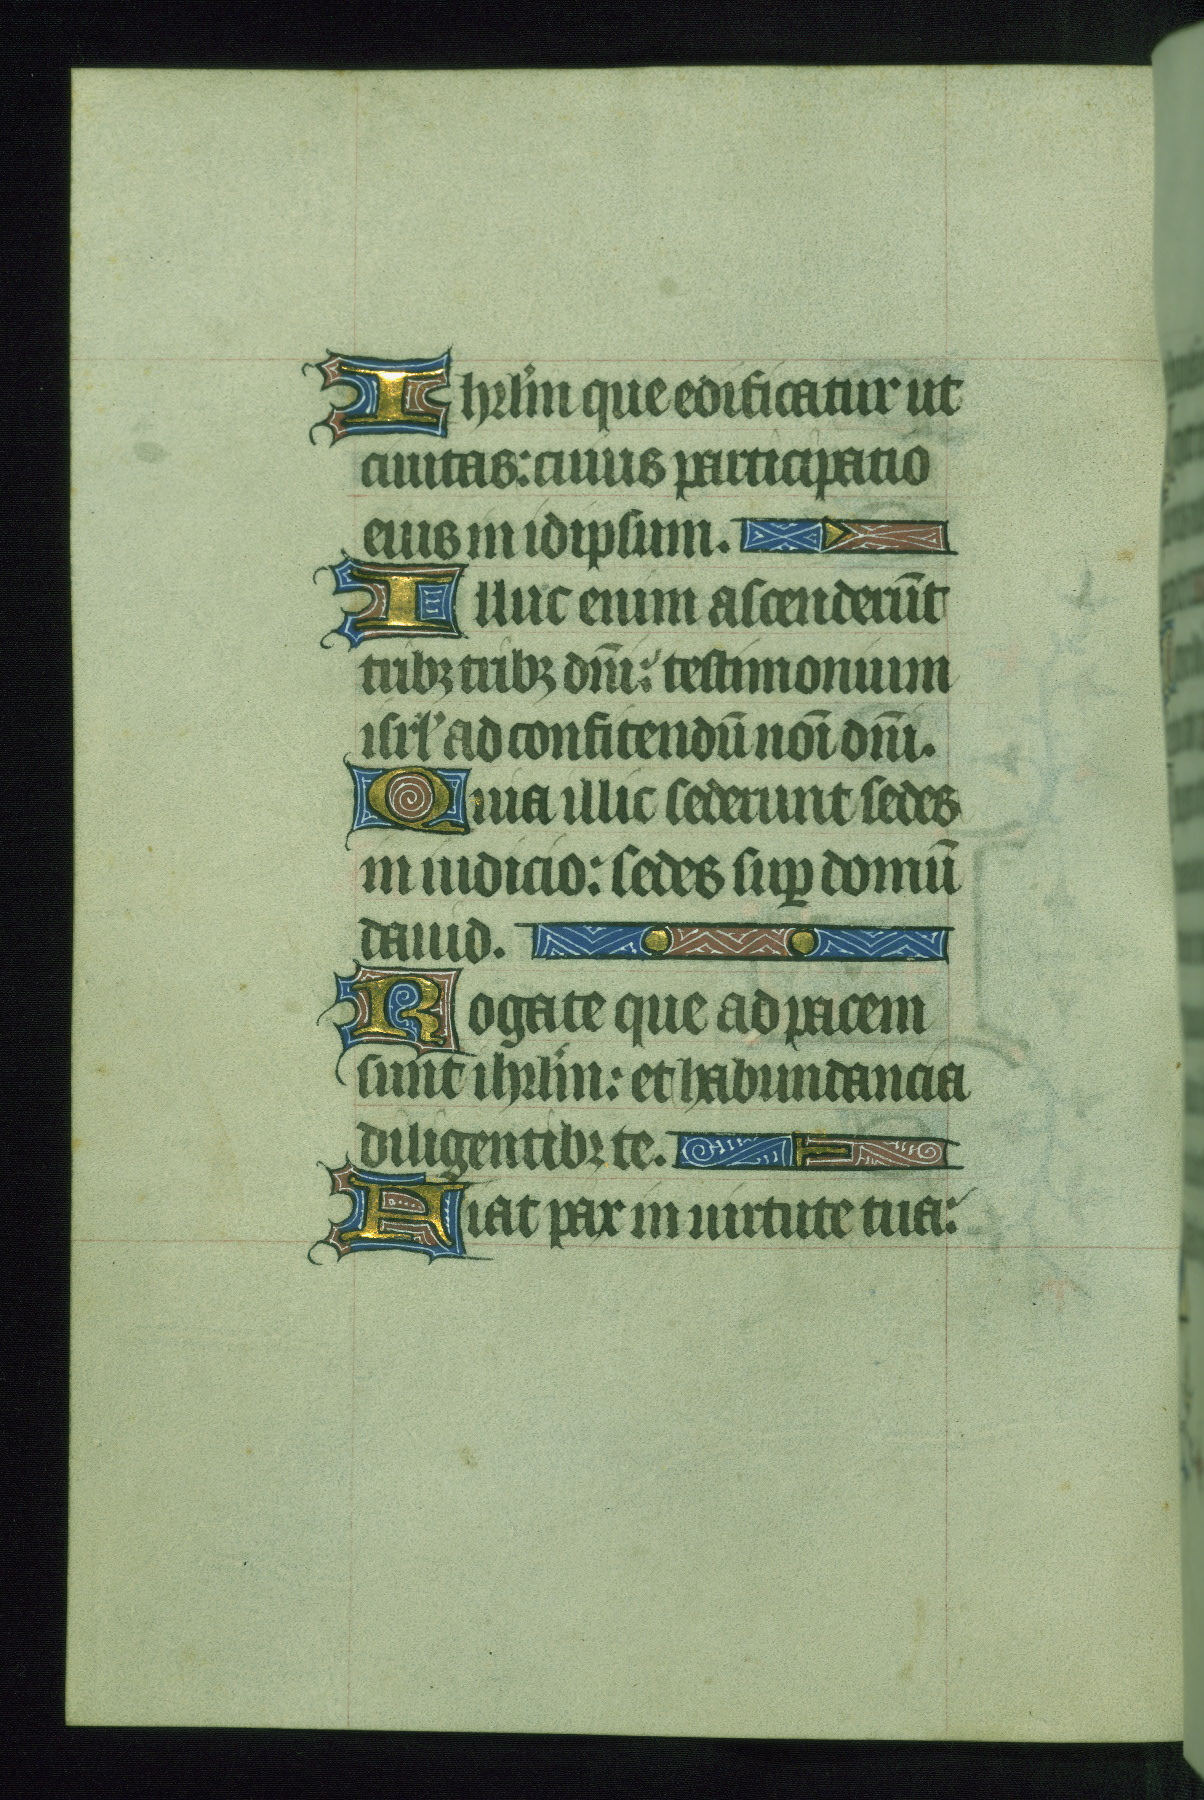 Ihrl̄m que edificatur ut
ciuitas: cuius participatio
eius in idipsum.
Illuc enim ascenderūt
tribꝫ tribꝫ dn̄i: testimonium
isrl̓ ad confitendū noī dn̄i.
Quia illic sederunt sedes
in iudicio: sedes suꝑ domū
dauid.
Rogate que ad pacem
sunt ihrl̄m: et habundancia
diligentibꝫ te.
Fiat pax in uirtute tua: